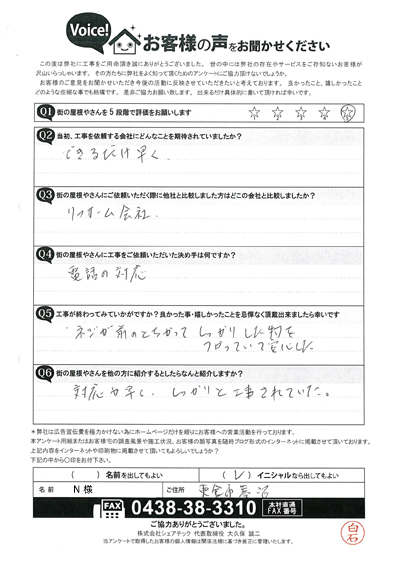 Voice!
お客様の声をお聞かせください
この度は弊社に工事をご用命頂き誠にありがとうございました。世の中には弊社の存在やサービスをご存知ないお客様が
沢山いらっしゃいます。その方たちに弊社をよく知って頂くためのアンケートにご協力頂けないでしょうか。
お客様のご意見をお聞かせいただき今後の活動に反映させていただきたいと考えております。良かったこと、嬉しかったこと
どのような些細な事でも結構です。是非ご協力お願い致します。出来るだけ具体的に書いて頂ければ幸いです。
Q1 街の屋根やさんを5段階で評価をお願いします ☆ ☆ ☆ ☆ ☆
Q2 当初、工事を依頼する会社にどんなことを期待されていましたか?
できるだけ早く
Q3 街の屋根やさんにご依頼いただく際に他社と比較しました方はどこの会社と比較しましたか?
リフォーム会社
Q4 街の屋根やさんに工事をご依頼いただいた決め手は何ですか?
電話の対応
Q5 工事が終わってみていかがですか?良かった事・嬉しかったことを忌憚なく頂戴出来ましたら幸いです
ネジが前のとちがって しっかりした物を
つかっていて安心した
Q6 街の屋根やさんを他の方に紹介するとしたらなんと紹介しますか?
対応が早く、しっかりと工事されていた。
*弊社は広告宣伝費を極力かけない為にホームページだけを頼りにお客様への営業活動を行っております。
本アンケート用紙またはお客様宅の調査風景や施工状況、お客様の顔写真を随時ブログ形式のインターネットに掲載させて頂いております。
上記内容をインターネットや印刷物に掲載させて頂いてもよろしいでしょうか?
下記の中から〇印をお付下さい。
( )名前を出してもよい (レ)イニシャルなら出してもよい
名前 N様 ご住所 東金市
FAX 0438-38-3310 本社直通 FAX番号
ご協力ありがとうございました。
株式会社シェアテック 代表取締役 大久保 誠二
当アンケートで取得したお客様の個人情報は関係法規に基づき厳正に管理いたします。
白石